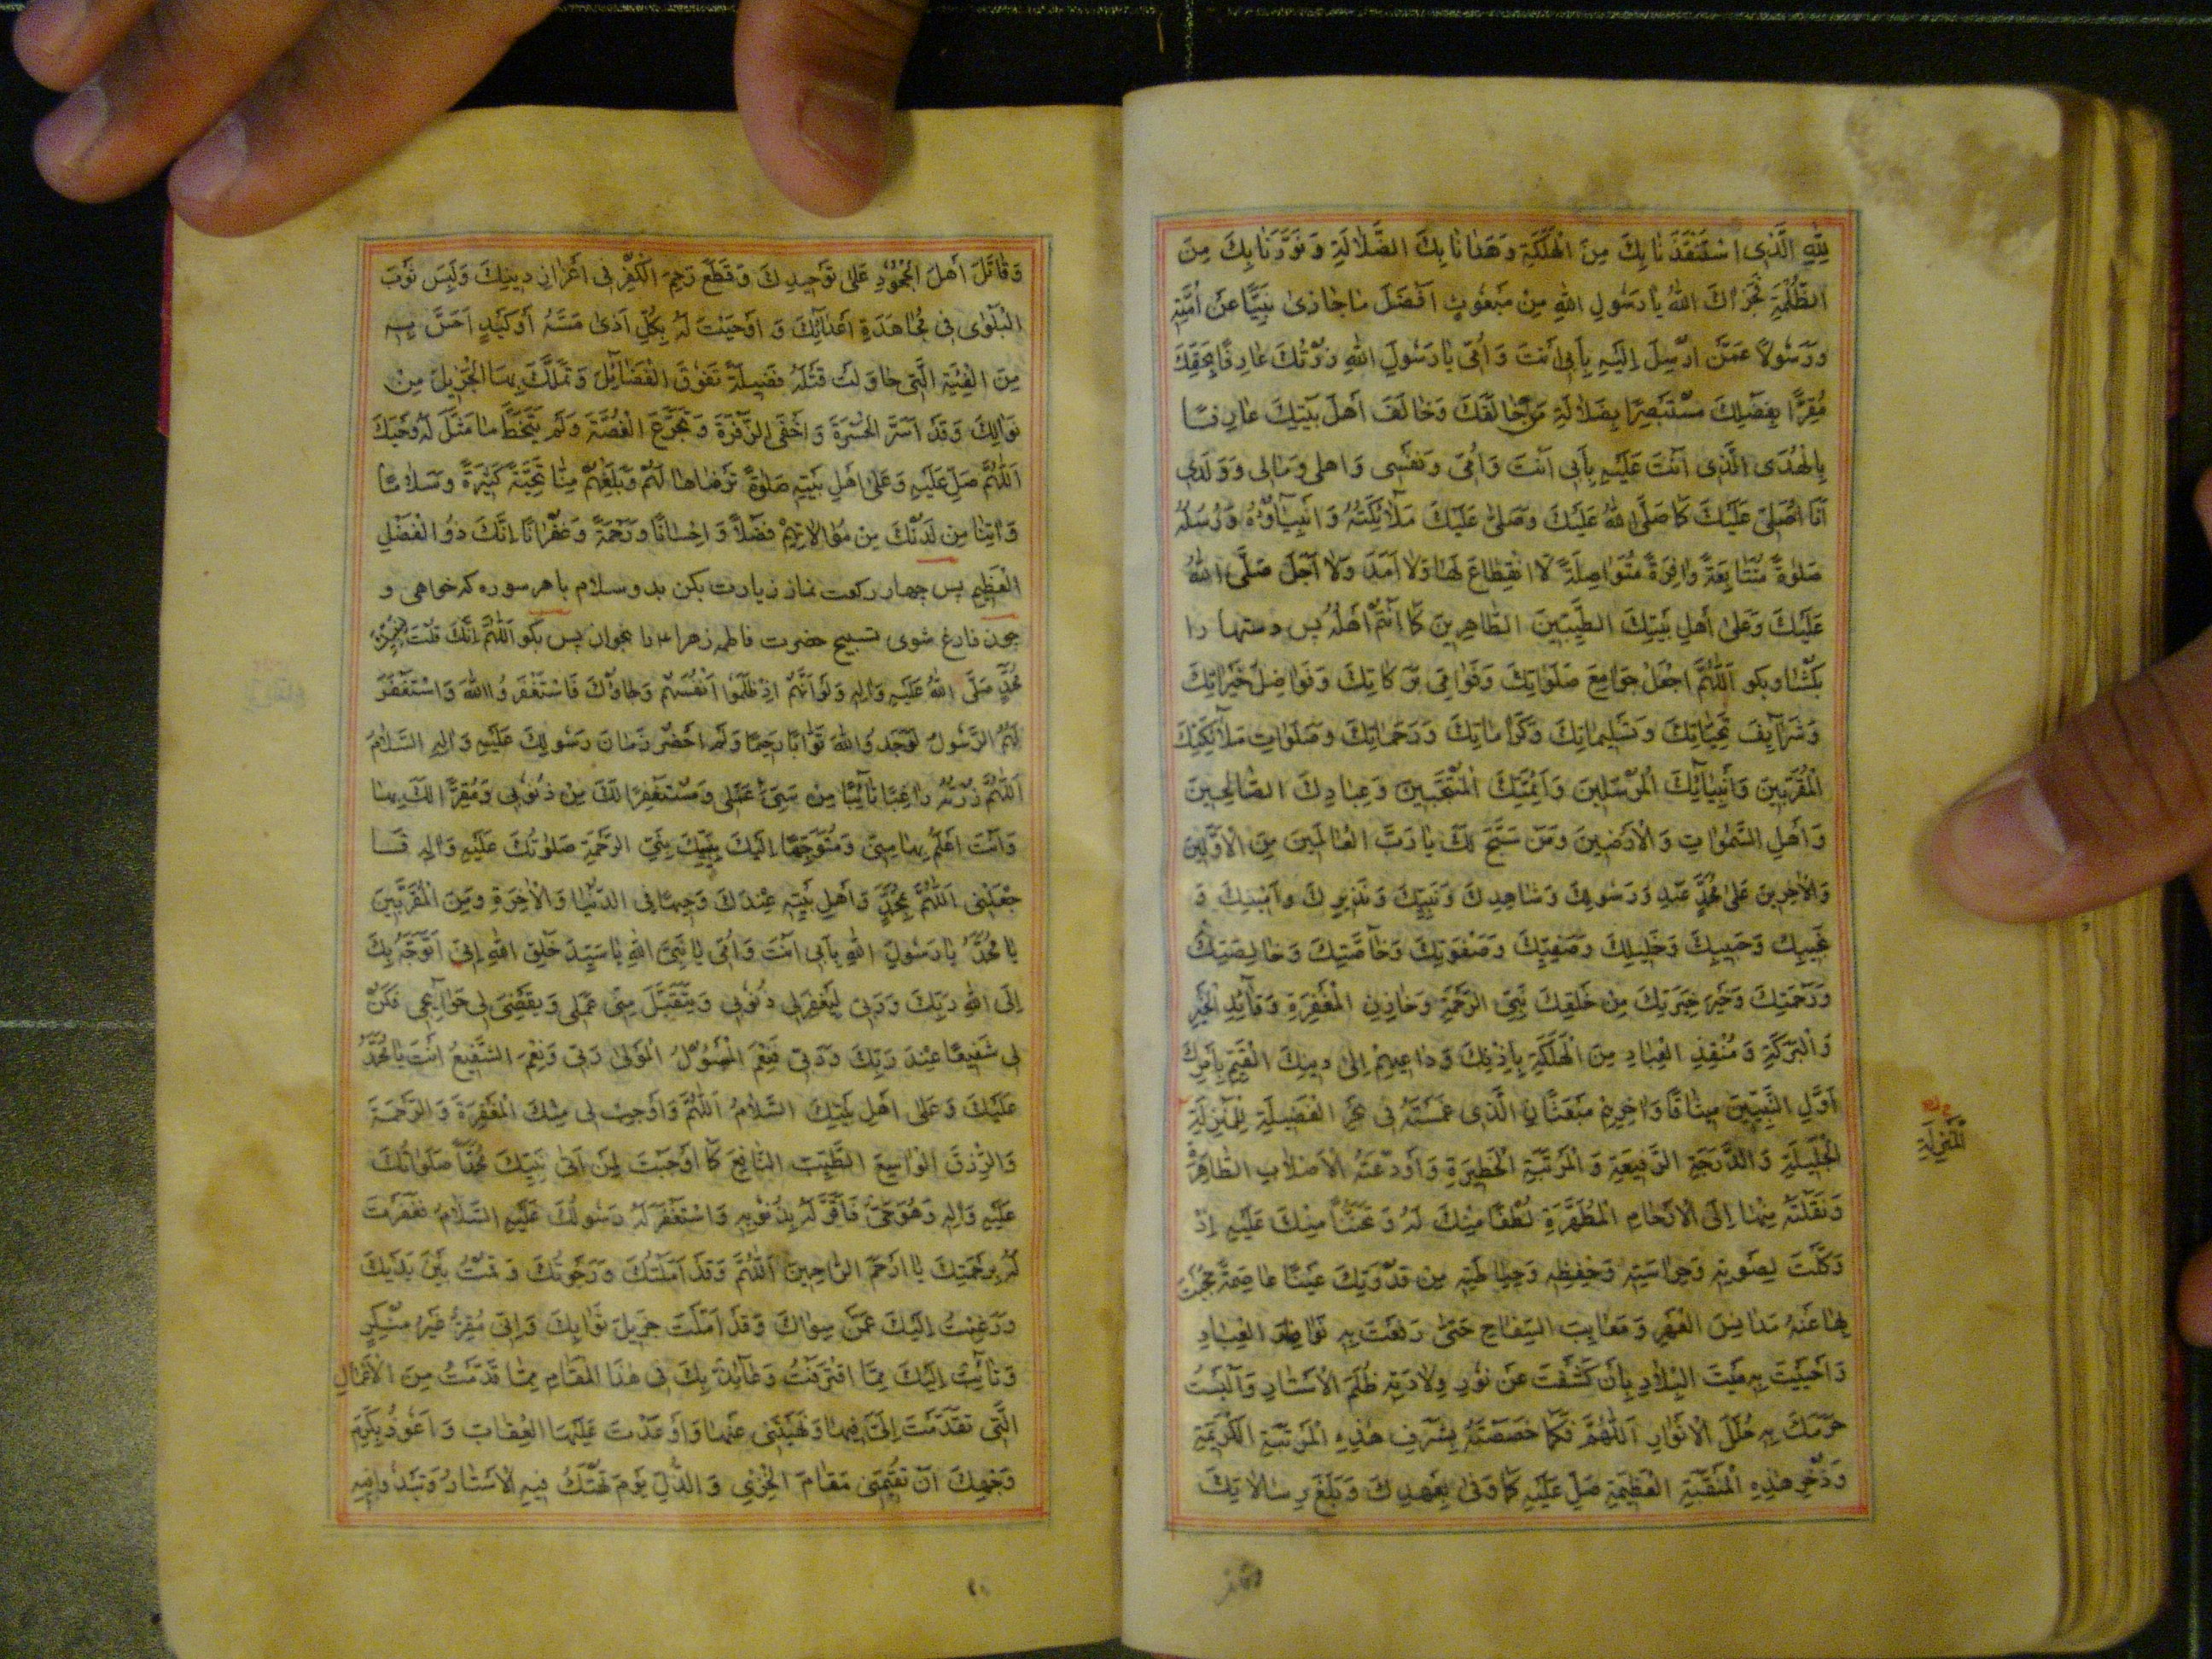 لِلّٰهِ الَّذِی اسْتَنْقَذَنَا بِكَ مِنَ الْهَلَكَةِ وَهَدَانَا بِكَ الضَّلَالَةِ وَنَوَّرَنَا بِكَ مِنَ
الظُّلْمَةِ فَجَزَاكَ اللهُ يَا رَسُولِ اللهِ مِنْ مَبْعُوثٍ اَفْضَلَ مَا جَازَىٰ نَبِيًّا عَنْ اُمَّتِهِ
وَرَسُولًا عَمَّنْ اُرْسِلَ اِلَيْهِ بِأَبِی اَنْتَ وَاُمِّی يَا رَسُولَ اللهِ زُرْتُكَ عَارِفًا بِحَقِّكَ
مُقِرًّا بِفَضْلِكَ مُسْتَبْصِرًا بِضَلَالَةِ مَنْ خَالَفَكَ وَخَالَفَ اَهْلَ بَيْتِكَ عَارِفًا
بِالْهُدَى الَّذِی اَنْتَ عَلَيْهِ بِأَبِی اَنْتَ وَاُمِّی وَنَفْسِی وَاَهْلِی وَمَالِی وَوَلَدِی
اَنَا اُصَلِّی عَلَيْكَ كَمَا صَلَّى اللهُ عَلَيْكَ وَصَلَّىٰ عَلَيْكَ مَلَآئِكَتُهُ وَاَنْبِيَآؤُهُ وَرُسُلُهُ
صَلٰوةً مُتَتَابِعَةً وَافِرَةً مُتَوَاصِلَةً لَا انْقِطَاعَ لَهَا وَلَا اَمَدَ وَلَا اَجَلَ صَلَّى اللهُ
عَلَيْكَ وَعَلىٰ اَهْلِ بَيْتِكَ الطَّيِّبِينَ الطَّاهِرِينَ كَمَا اَنْتُمْ اَهْلُهُ پس دستها را
بکشا وبکو اَللّٰهُمَّ اجْعَلْ جَوَامِعَ صَلَوَاتِكَ وَنَوَامِیَ بَرَكَاتِكَ وَفَوَاضِلَ خَيْرَاتِكَ
وَشَرَآئِفَ تَحِيَّاتِكَ وَتَسْلِيمَاتِكَ وَكَرَامَاتِكَ وَرَحَمَاتِكَ وَصَلَوَاتِ مَلَآئِكَتِكَ
الْمُقَرَّبِينَ وَاَنْبِيَآئِكَ الْمُرْسَلِينَ وَاَئِمَّتِكَ الْمُنْتَجَبِينَ وَعِبَادِكَ الصَّالِحِينَ
وَاَهْلِ السَّمٰوَاتِ وَالْاَرَضِينَ وَمَنْ سَبَّحَ لَكَ يَا رَبَّ الْعَالَمِينَ مِنَ الْاَوَّلِينَ
وَالْاٰخِرِينَ عَلىٰ مُحَمَّدٍ عَبْدِكَ وَرَسُولِكَ وَشَاهِدِكَ وَنَبِيِّكَ وَنَذِيرِكَ وَاَمِينِكَ وَ
نَجِيبِكَ وَحَبِيبِكَ وَخَلِيلِكَ وَصَفِيِّكَ وَصَفْوَتِكَ وَخَآصَّتِكَ وَخَالِصَتِكَ
وَرَحْمَتِكَ وَخَيْرِ خِيَرَتِكَ مِنْ خَلْقِكَ نَبِیِّ الرَّحْمَةِ وَخَازِنِ الْمَغْفِرَةِ وَقَآئِدِ الْخَيْرِ
وَالْبَرَكَةِ وَمُنْقِذِ الْعِبَادِ مِنَ الْهَلَكَةِ بِاِذْنِكَ وَدَاعِيهِمْ اِلىٰ دِينِكَ الْقَيِّمِ بِاَمْرِكَ
اَوَّلِ النَّبِيِّينَ مِيثَاقًا وَاٰخِرِهِمْ مَبْعَثًا الَّذِی غَمَسْتَهُ فِی بَحْرِ الْفَضِيلَةِ لِلْمَنْزِلَةِ
الْجَلِيلَةِ وَالدَّرَجَةِ الرَّفِيعَةِ وَالْمَرْتَبَةِ الْخَطِيرَةِ وَاَوْدَعْتَهُ الْاَصْلَابَ الطَّاهِرَةَ
وَنَقَلْتَهُ مِنْهَا اِلَى الْاَرْحَامِ الْمُطَهَّرَةِ لُطْفًا مِنْكَ لَهُ وَتَحَنُّنًا مِنْكَ عَلَيْهِ اِذْ
وَكَّلْتَ لِصَوْنِهِ وَحِرَاسَتِهِ وَحِفْظِهِ وَحِيَاطَتِهِ مِنْ قُدْرَتِكَ عَيْنًا عَاصِمَةً حَجَبْتَ
بِهَا عَنْهُ مَدَانِسَ الْعَهْرِ وَمَعَايِبَ السِّفَاحِ حَتّىٰ رَفَعْتَ بِهِ نَوَاظِرَ الْعِبَادِ
وَاَحْيَيْتَ بِهِ مَيْتَ الْبِلَادِ بِاَنْ كَشَفْتَ عَنْ نُورِ وِلَادَتِهِ ظُلَمَ الْاَسْتَارِ وَاَلْبَسْتَ
حَرَمَكَ بِهِ حُلَلَ الْاَنْوَارِ اَللّٰهُمَّ فَكَمَا خَصَصْتَهُ بِشَرَفِ هٰذِهِ الْمَرْتَبَةِ الْكَرِيمَةِ
وَذُخْرِ هٰذِهِ الْمَنْقَبَةِ الْعَظِيمَةِ صَلِّ عَلَيْهِ كَمَا وَفىٰ بِعَهْدِكَ وَبَلَّغَ رِسَالَاتِكَ
وَقَاتَلَ اَهْلَ الْجُحُودِ عَلىٰ تَوْحِيدِكَ وَقَطَعَ رَحِمَ الْكُفْرِ فِی اِعْزَازِ دِينِكَ وَلَبِسَ ثَوْبَ
الْبَلْوىٰ فِی مُجَاهَدَةِ اَعْدَآئِكَ وَ اَوْجَبْتَ لَهُ بِكُلِّ اَذىً مَسَّهُ اَوْ كَيْدٍ اَحَسَّ بِهِ
مِنَ الْفِئَةِ الَّتِی حَاوَلَتْ قَتْلَهُ فَضِيلَةً تَفُوقُ الْفَضَآئِلَ وَتَمَلَّكَ بِهَا الْجَزِيلَ مِنْ
نَوَالِكَ وَقَدْ اَسَرَّ الْحَسْرَةَ وَاَخْفَى الزَّفْرَةَ وَتَجَرَّعَ الْغُصَّةَ وَلَمْ يَتَخَطَّ مَا مَثَّلَ لَهُ وَحْيُكَ
اَللّٰهُمَّ صَلِّ عَلَيْهِ وَعَلىٰ اَهْلِ بَيْتِهِ صَلٰوةً تَرْضَاهَا لَهُمْ وَبَلِّغْهُمْ مِنَّا تَحِيَّةً كَثِيرَةً وَسَلَامًا
وَاٰتِنَا مِنْ لَدُنْكَ مِنْ مُوَالَاتِهِمْ فَضْلًا وَاِحْسَانًا وَرَحْمَةً وَغُفْرَانًا اِنَّكَ ذُو الْفَضْلِ
الْعَظِيمِ پس چهار رکعت نماز زیارت بکن بدو سلام با هر سوره که خواهی و
چون فارغ شوی تسبیح حضرت فاطمه زهرا ع را بخوان پس بکو اَللّٰهُمَّ اِنَّكَ قُلْتَ
مُحَمَّدٍ صَلَّى اللهُ عَلَيْهِ وَاٰلِهِ وَلَوْ اَنَّهُمْ اِذْ ظَلَمُوا اَنْفُسَهُمْ وَجَاؤُكَ فَاسْتَغْفَرُوا اللهَ وَاسْتَغْفَرَ
لَهُمُ الرَّسُولُ لَوَجَدُوا اللهَ تَوَّابًا رَحِيمًا وَلَمْ اَحْضُرْ زَمَانَ رَسُولِكَ عَلَيْهِ وَاٰلِهِ السَّلَامُ
اَللّٰهُمَّ زُرْتُهُ رَاغِبًا تَآئِبًا مِنْ سَيِّئِ عَمَلِی وَمُسْتَغْفِرًا لَكَ مِنْ ذُنُوبِی وَمُقِرًّا لَكَ بِهَا
وَاَنْتَ اَعْلَمُ بِهَا مِنِّی وَمُتَوَجِّهًا اِلَيْكَ بِنَبِيِّكَ نَبِیِّ الرَّحْمَةِ صَلَوٰتُكَ عَلَيْهِ وَاٰلِهِ فَا
جْعَلْنِی اَللّٰهُمَّ بِمُحَمَّدٍ وَاَهْلِ بَيْتِهِ عِنْدَكَ وَجِيهًا فِی الدُّنْيَا وَالْاٰخِرَةِ وَمِنَ الْمُقَرَّبِينَ
يَا مُحَمَّدُ يَا رَسُولَ اللهِ بِاَبِی اَنْتَ وَاُمِّی يَا نَبِیَّ اللهِ يَا سَيِّدَ خَلْقِ اللهِ اِنِّی اَتَوَجَّهُ بِكَ
اِلَى اللهِ رَبِّكَ وَرَبِّی لِيَغْفِرَ لِی ذُنُوبِی وَيَتَقَبَّلَ مِنِّی عَمَلِی وَيَقْضِیَ لِی حَوَآئِجِی فَكُنْ
لِی شَفِيعًا عِنْدَ رَبِّكَ وَرَبِّی فَنِعْمَ الْمَسْؤُلُ الْمَوْلىٰ رَبِّی وَنِعْمَ الشَّفِيعُ اَنْتَ يَا مُحَمَّدُ
عَلَيْكَ وَعَلىٰ اَهْلِ بَيْتِكَ السَّلَامُ اَللّٰهُمَّ وَاَوْجِبْ لِی مِنْكَ الْمَغْفِرَةَ وَالرَّحْمَةَ
وَالرِّزْقَ الْوَاسِعَ الطَّيِّبَ النَّافِعَ كَمَا اَوْجَبْتَ لِمَنْ اَتىٰ نَبِيَّكَ مُحَمَّدًا صَلَوَاتُكَ
عَلَيْهِ وَاٰلِهِ وَهُوَ حَیٌّ فَاَقَرَّ لَهُ بِذُنُوبِهِ وَاسْتَغْفَرَ لَهُ رَسُولُكَ عَلَيْهِ السَّلَامُ فَغَفَرْتَ
لَهُ بِرَحْمَتِكَ يَا اَرْحَمَ الرَّاحِمِينَ اَللّٰهُمَّ وَقَدْ اَمَّلْتُكَ وَرَجَوْتُكَ وَقُمْتُ بَيْنَ يَدَيْكَ
وَرَغِبْتُ اِلَيْكَ عَمَّنْ سِوَاكَ وَقَدْ اَمَّلْتُ جَزِيلَ ثَوَابِكَ وَاِنِّی مُقِرٌّ غَيْرُ مُنْكِرٍ
وَتَآئِبٌ اِلَيْكَ مِمَّا اقْتَرَفْتُ وَعَآئِذٌ بِكَ فِی هٰذَا الْمَقَامِ مِمَّا قَدَّمْتُ مِنَ الْاَعْمَالِ
الَّتِی تَقَدَّمْتَ اِلَیَّ فِيهَا وَنَهَيْتَنِی عَنْهَا وَاَوْعَدْتَ عَلَيْهَا الْعِقَابَ وَاَعُوذُ بِكَرَمِ
وَجْهِكَ اَنْ تُقِيمَنِی مَقَامَ الْخِزْیِ وَالذُّلِّ يَوْمَ تُهْتَكُ فِيهِ الْاَسْتَارُ وَتَبْدُو فِيهِ